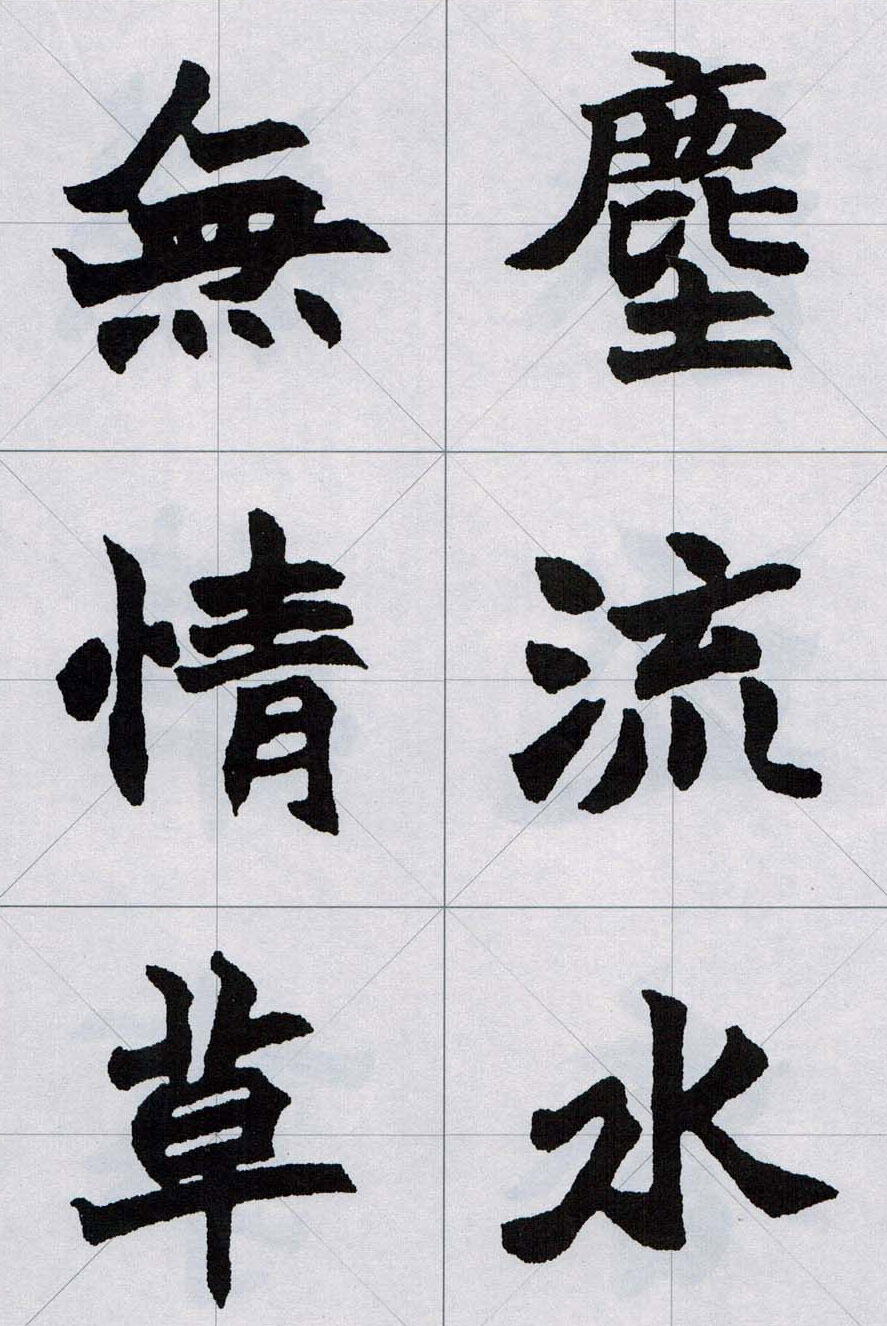 塵流水
無情草